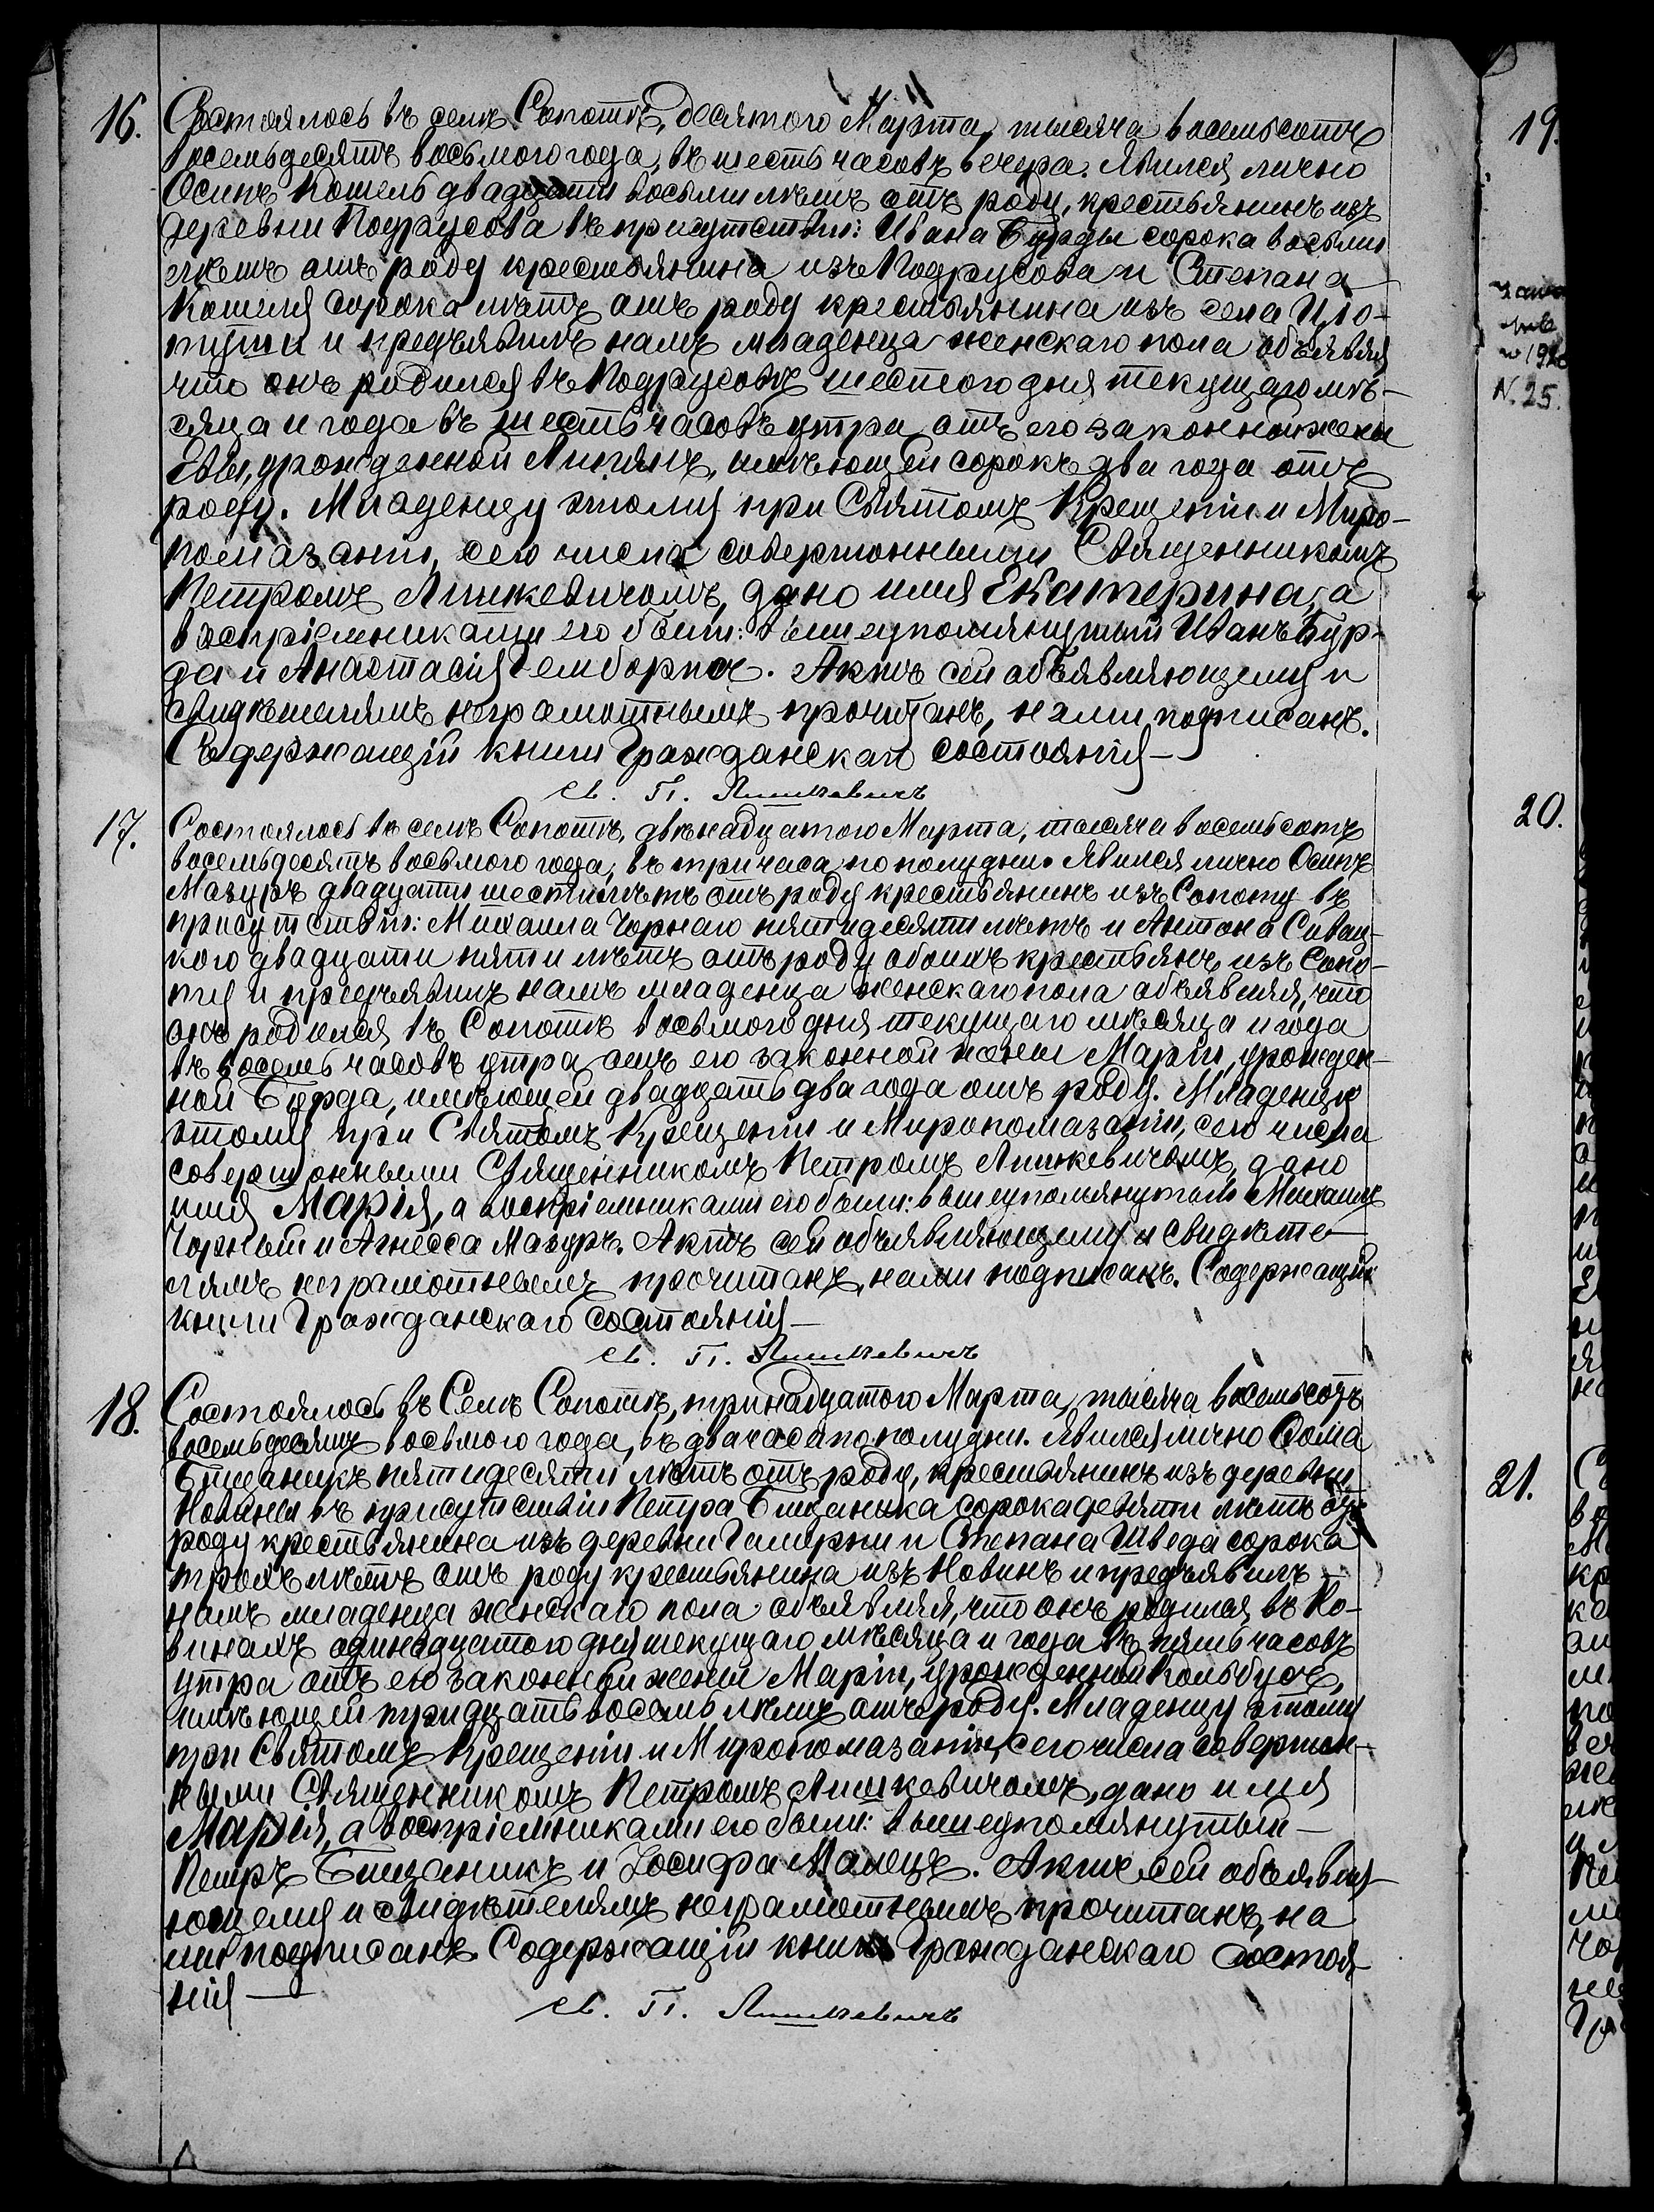 16. Состоялось въ селѣ Сопотѣ, десятого Марта, тысяча восемьсотъ
восемьдесятъ восьмого года, въ шесть часовъ вечера. Явился лично
Осипъ Кошель двадцати восьми лѣтъ отъ роду, крестьянинъ изъ
деревни Подрусова въ присутствіи: Ивана Бурды сорока восьми
лѣтъ отъ роду крестьянина изъ Подрусова и Степана
Кошеля сорока лѣтъ отъ роду крестьянина изъ села Цѣо-
туши и предъявилъ намъ младенца женскаго пола объявляя
что онъ родился въ Подрусовѣ шестого дня текущаго мѣ-
сяца и года въ шесть часовъ утра отъ его законной жены
Евы, урожденной, имѣющей сорокъ два года отъ
роду. Младенцу этому при Святомъ Крещеніи и Миро-
помазаніи, сего числа совершонными Священникомъ
Петромъ Ляшкевичомъ, дано имя Екатерина, а
воспріемниками его были: вышеупомянутый Иванъ Бур-
да и Анастасія. Актъ сей объявляющему и
свидѣтелямъ неграмотнымъ прочитанъ, нами подписанъ.
Содержащій книги Гражданскаго состоянія—
Св. П. Ляшкевичъ
17. Состоялось въ селѣ Сопотѣ, двѣнадцатого Марта, тысяча восемьсотъ
восемьдесятъ восьмого года, въ три часа по полудни. Явился лично Осипъ
Мазуръ двадцати шести лѣтъ отъ роду крестьянинъ изъ Сопоту въ
присутствіи: Михаила Чорнаго пятидесяти лѣтъ и Антона Сивац-
кого двадцати пяти лѣтъ отъ роду обоихъ крестьянъ изъ Сопо-
ту и предъявилъ намъ младенца женскаго пола объявляя, что
онъ родился въ Сопотѣ восьмого дня текущаго мѣсяца и года
въ восемь часовъ утра отъ его законной жены Маріи, урожден-
ной Бурда, имѣющей двадцать два года отъ роду. Младенцу
этому при Святомъ Крещеніи и Миропомазаніи, сего числа
совершонными Священникомъ Петромъ Ляшкевичомъ, дано
имя Марія, а воспріемниками его были: вышеупомянутый Михаилъ
Чорный и Агнесса Мазуръ. Актъ сей объявляющему и свидѣте-
лямъ неграмотнымъ прочитанъ, нами подписанъ. Содержащій
книги Гражданскаго состоянія—
Св. П. Ляшкевичъ
18. Состоялось въ Селѣ Сопотѣ, тринадцатого Марта, тысяча восемьсотъ
восемьдесятъ восьмого года, въ два часа по полудни. Явился лично Ѳома
Бищаникъ пятидесяти лѣтъ отъ роду, крестьянинъ изъ деревни
Новины въ присутствіи Петра Бищаника сорока девяти лѣтъ отъ
роду крестьянина изъ деревни Гамерни и Степана Шведа сорока
трохъ лѣтъ отъ роду крестьянина изъ Новинъ и предъявилъ
намъ младенца женскаго пола объявляя, что онъ родился въ Но-
винахъ одинадцатого дня текущаго мѣсяца и года въ пять часовъ
утра отъ его законной жены Маріи, урожденной Кольбухъ,
имѣющей тридцать восемь лѣтъ отъ роду. Младенцу этому
при Святомъ Крещеніи и Миропомазаніи, сего числа совершон-
ными Священникомъ Петромъ Ляшкевичомъ, дано имя
Марія, а воспріемниками его были: вышеупомянутый—
Петръ Бищаникъ и Іосифа Малецъ. Актъ сей объявля-
ющему и свидѣтелямъ неграмотнымъ прочитанъ, на
ми подписанъ. Содержащій книги Гражданскаго состоя-
нія—
Св. П. Ляшкевичъ
19.
N. 25.
20.
21.